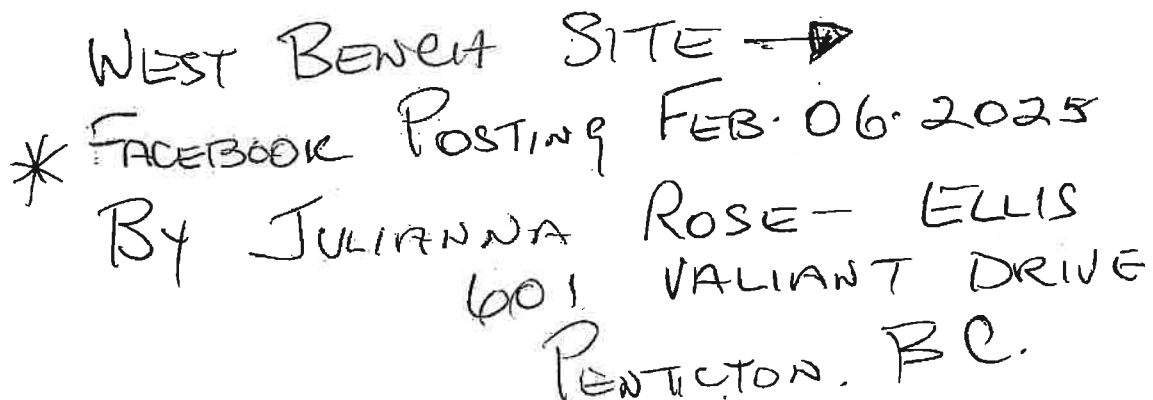 WEST BENCH SITE →
* FACEBOOK POSTING FEB. 06. 2025
BY JULIANNA ROSE - ELLIS
601 VALIANT DRIVE
PENTICTON. BC.